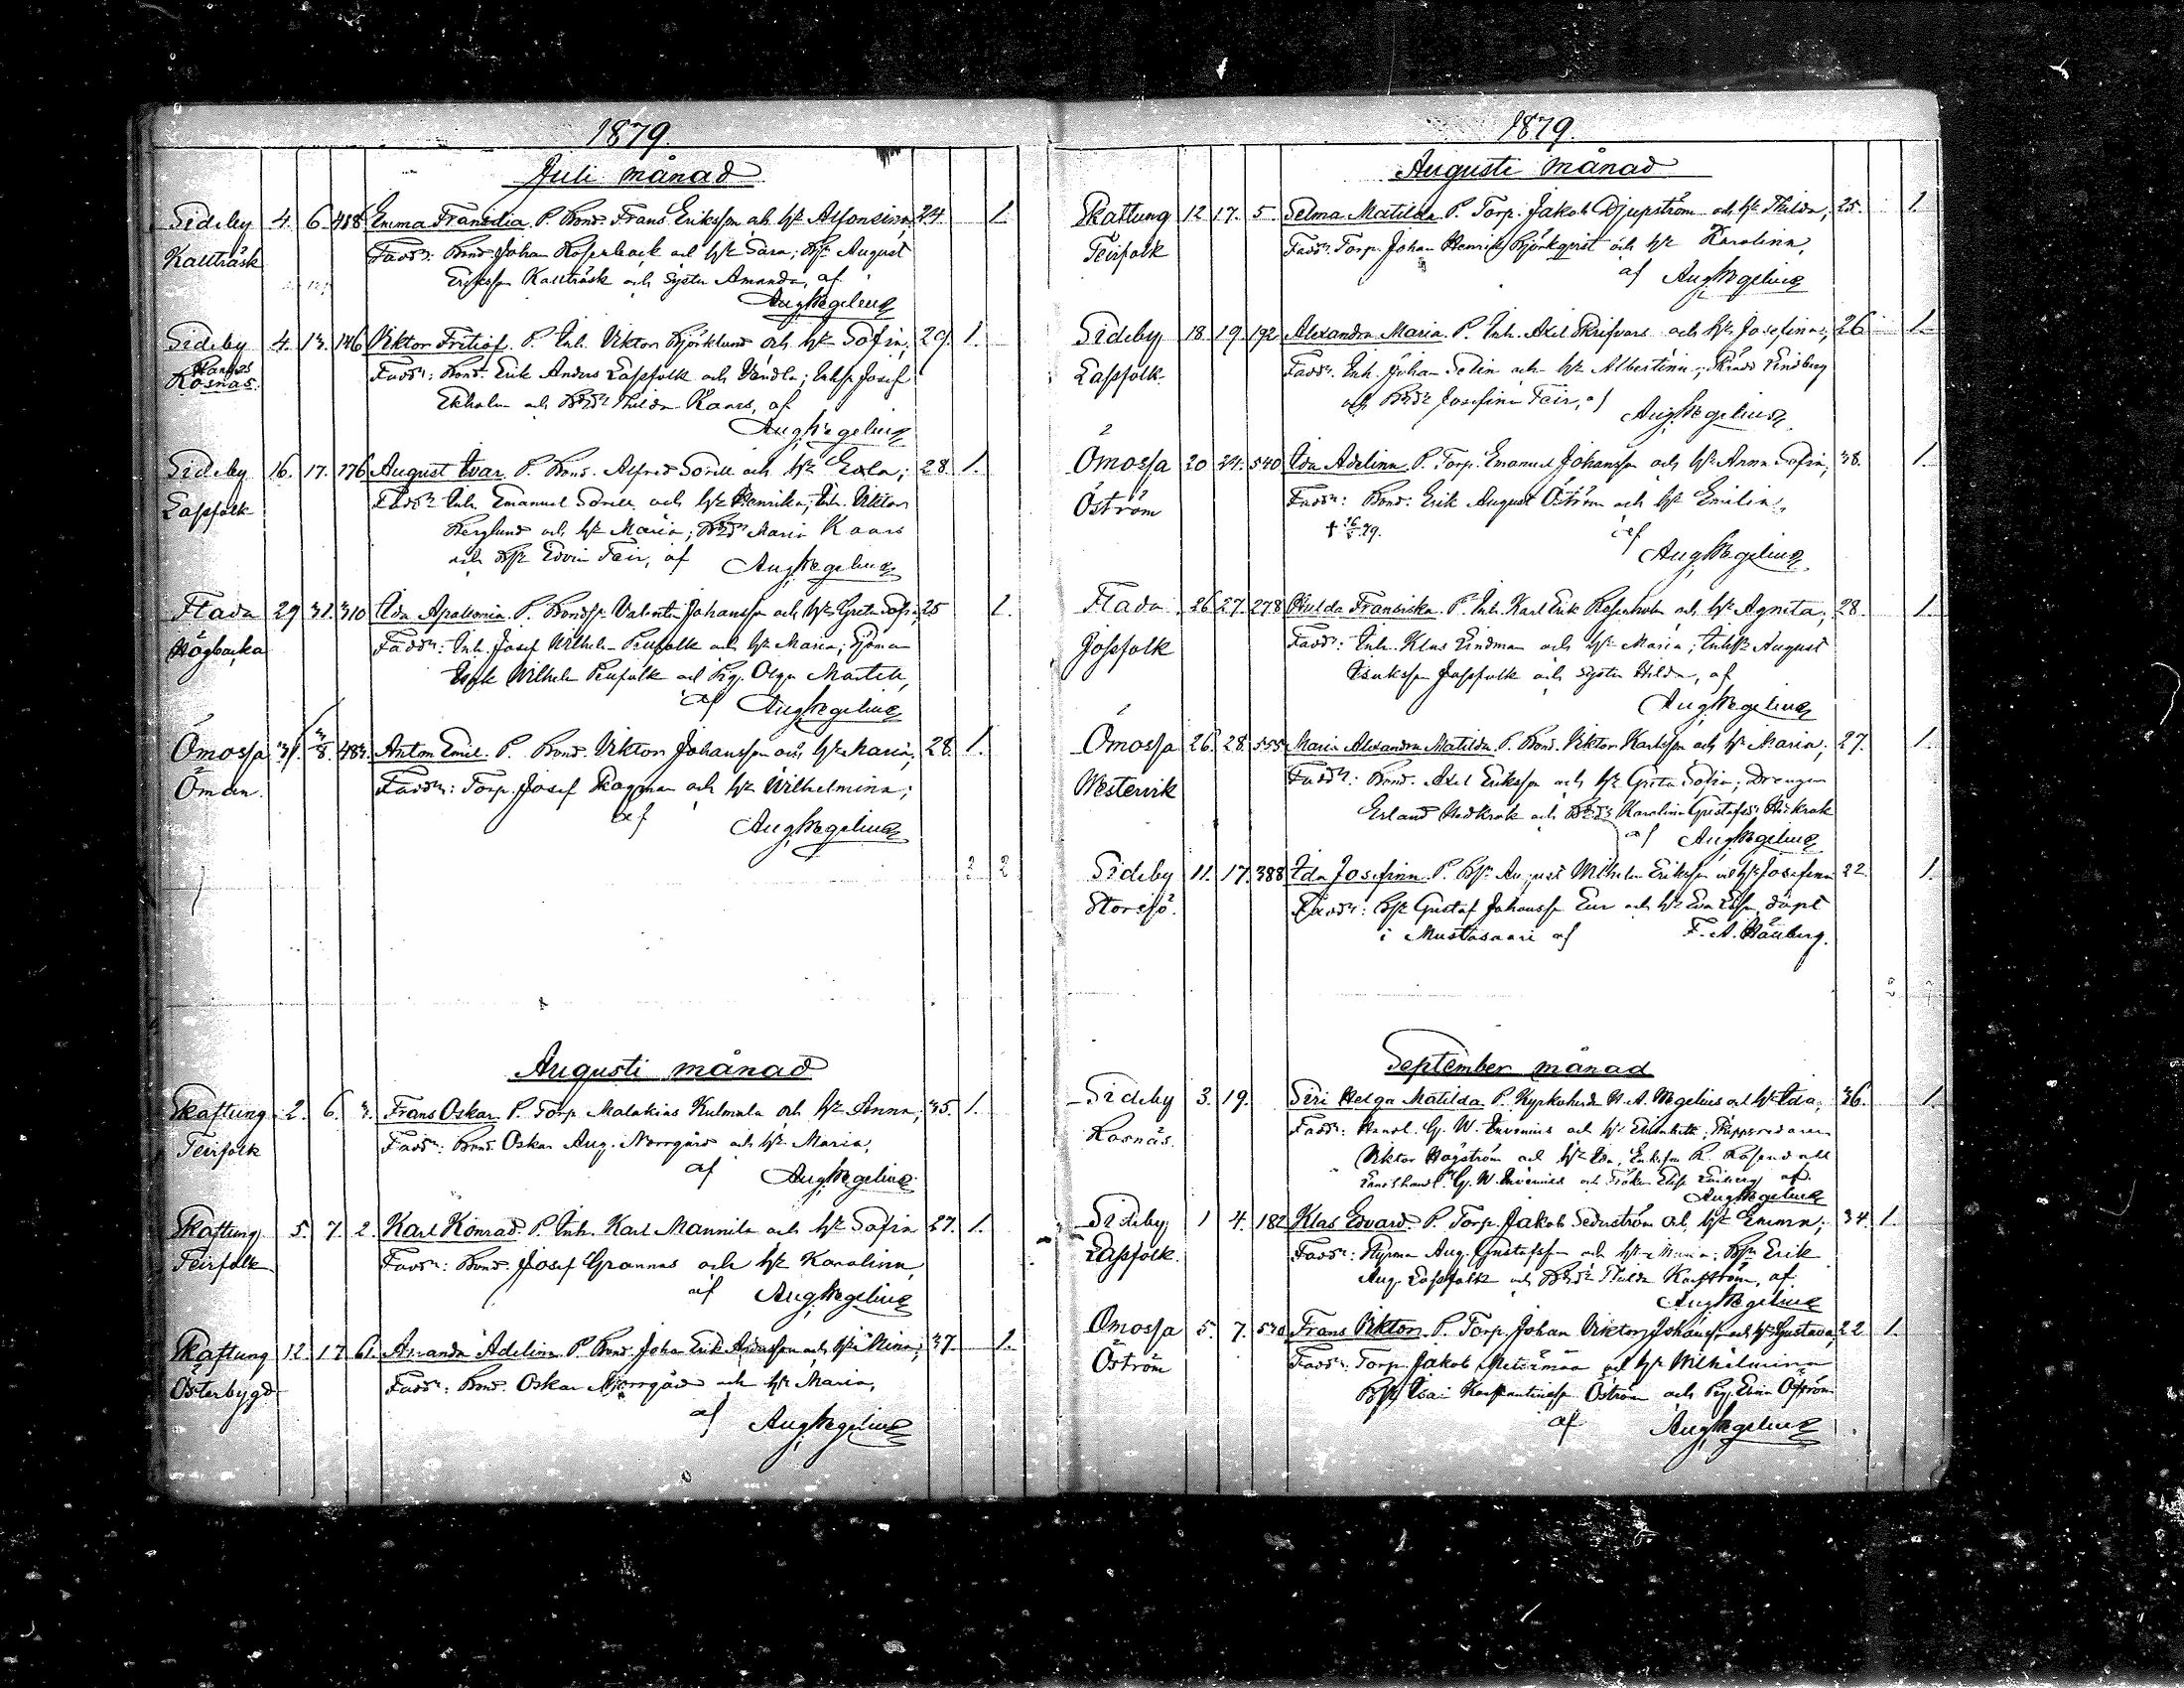 1879.
Juli månad
Sideby 4. 6. 488 Emma Fransedia. P. Bond. Frans Eriksson och h:u Alfonsina, 24. 1.
Kallträsk Fadd:r: Bond. Johan Rosenback och h:u Sara; August
Eriksson Kallträsk och Syster Amanda, af
Aug Wegelius
Sideby 4. 13. 146 Viktor Fritiof. P. Inh. Viktor Björklund och h:u Sofia, 29. 1.
Kosnäs. Fadd:r: Bond. Erik Anders Lassfolk och Vendla; Josef
Ekholm och Hilda Kaars, af
Aug Wegelius
Sideby 16. 17. 176 August Ivar. P. Bond. Alfred Sorell och h:u Edla; 28. 1.
Lassfolk Fadd:r Inh. Emanuel Sorell och h:u Henrika; Inh. Viktor
Berglund och h:u Maria; Maria Kaars
och Edvin Teir, af Aug Wegelius
Flada 29 31. 310 Ida Apallonia. P. Valentin Johansson och h:u Greta Sofia, 25 1.
Högbacka Fadd:r: Inh. Josef Wilhelm och h:u Maria;
Wilhelm och Pig. Olga Martell,
af Aug Wegelius
Ömossa 31. 3/8. 483. Anton Emil. P. Bond. Viktor Johansson och h:u Maria; 28. 1.
Öman. Fadd:r: Torp. Josef Skogman och h:u Wilhelmina;
af Aug Wegelius
2 2
Augusti månad
Skaftung 2. 6. 3. Frans Oskar. P. Torp. Malakias Kulmala och h:u Anna, 35. 1.
Teirfolk Fadd:r: Bond. Oskar Aug. Norrgård och h:u Maria,
af Aug Wegelius
Skaftung 5. 7. 2. Karl Konrad. P. Inh. Karl Mannila och h:u Sofia 27. 1.
Teirfolk Fadd:r: Bond. Josef Grannas och h:u Karolina,
af Aug Wegelius
Skaftung 12. 17 61. Amanda Adelina. P. Bond. Johan Erik Andersson och h:u Mina; 37. 1.
Österbygd Fadd:r: Bond. Oskar Norrgård och h:u Maria,
af Aug Wegelius
1879.
Augusti månad
Skaftung 12 17. 5 Selma Matilda. P. Torp. Jakob Djupström och h:u Hilda, 25. 1.
Teirfolk Fadd:r Torp. Johan Henrik Björkqvist och h:u Karolina,
af Aug Wegelius
Sideby 18. 19. 192 Alexandra Maria. P. Inh. Axel Skrifvars och h:u Josefina; 26 1.
Lassfolk. Fadd:r. Inh. Johan Selin och h:u Albertina; Lindberg
och Josefina Teir, af Aug Wegelius
Ömossa 20 24. 540 Ida Adelina. P. Torp. Emanuel Johansson och h:u Anna Sofia, 38. 1.
Öström Fadd:r: Bond. Erik August Öström och h:u Emilia,
af
Aug Wegelius
Flada 26 27. 278 Hulda Fransiska. P. Inh. Karl Erik Rosenholm och h:u Agnita; 28. 1.
Jossfolk Fadd:r: Inh. Klas Lindman och h:u Maria; August
Isaksson Jossfolk och Syster Hilda, af
Aug Wegelius
Ömossa 26. 28. 555 Maria Alexandra Matilda. P. Bond. Viktor Karlsson och h:u Maria; 27. 1.
Westervik Fadd:r: Bond. Axel Eriksson och h:u Greta Sofia; Drengen
Erland och Karolina
af Aug Wegelius
Sideby 11. 17. 388 Ida Josefina. P. August Wilhelm Eriksson och h:u Josefina 22 1.
Storsjö. Fadd:r: Gustaf Johansson och h:u döpt
i Mustasaari af F. A. Hällberg.
September månad
Sideby 3. 19. Siri Helga Matilda. P. Kyrkoherde A. Wegelius och h:u Ida; 36. 1.
Kosnäs. Fadd:r: Handl. G. W. Invenius och h:u
Viktor Högström och h:u Ida, Rosendall
G. W. Invenius och Fröken af
Aug Wegelius
Sideby 1 4. 182 Klas Edvard. P. Torp. Jakob Sederström och h:u Emma; 34. 1.
Lassfolk. Fadd:r: Aug. Gustafsson och h:u Maria; Erik
Aug. Lassfolk och Hilda, af
Aug Wegelius
Ömossa 5. 7. 530 Frans Viktor. P. Torp. Johan Viktor Johansson och h:u Gustava, 22 1.
Öström Fadd:r: Torp. Jakob och h:u Wilhelmina
Öström och Pig. Öström
af Aug Wegelius